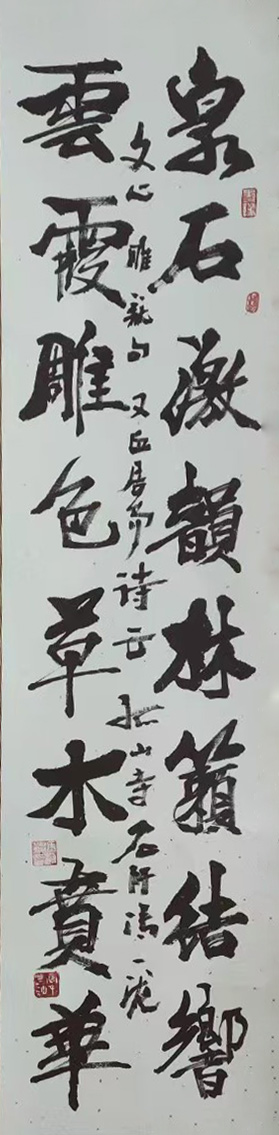 泉石激韻林籟結響
雲霞雕色草木賁華
文心雕龍句 又 丘居 诗云 山寺石